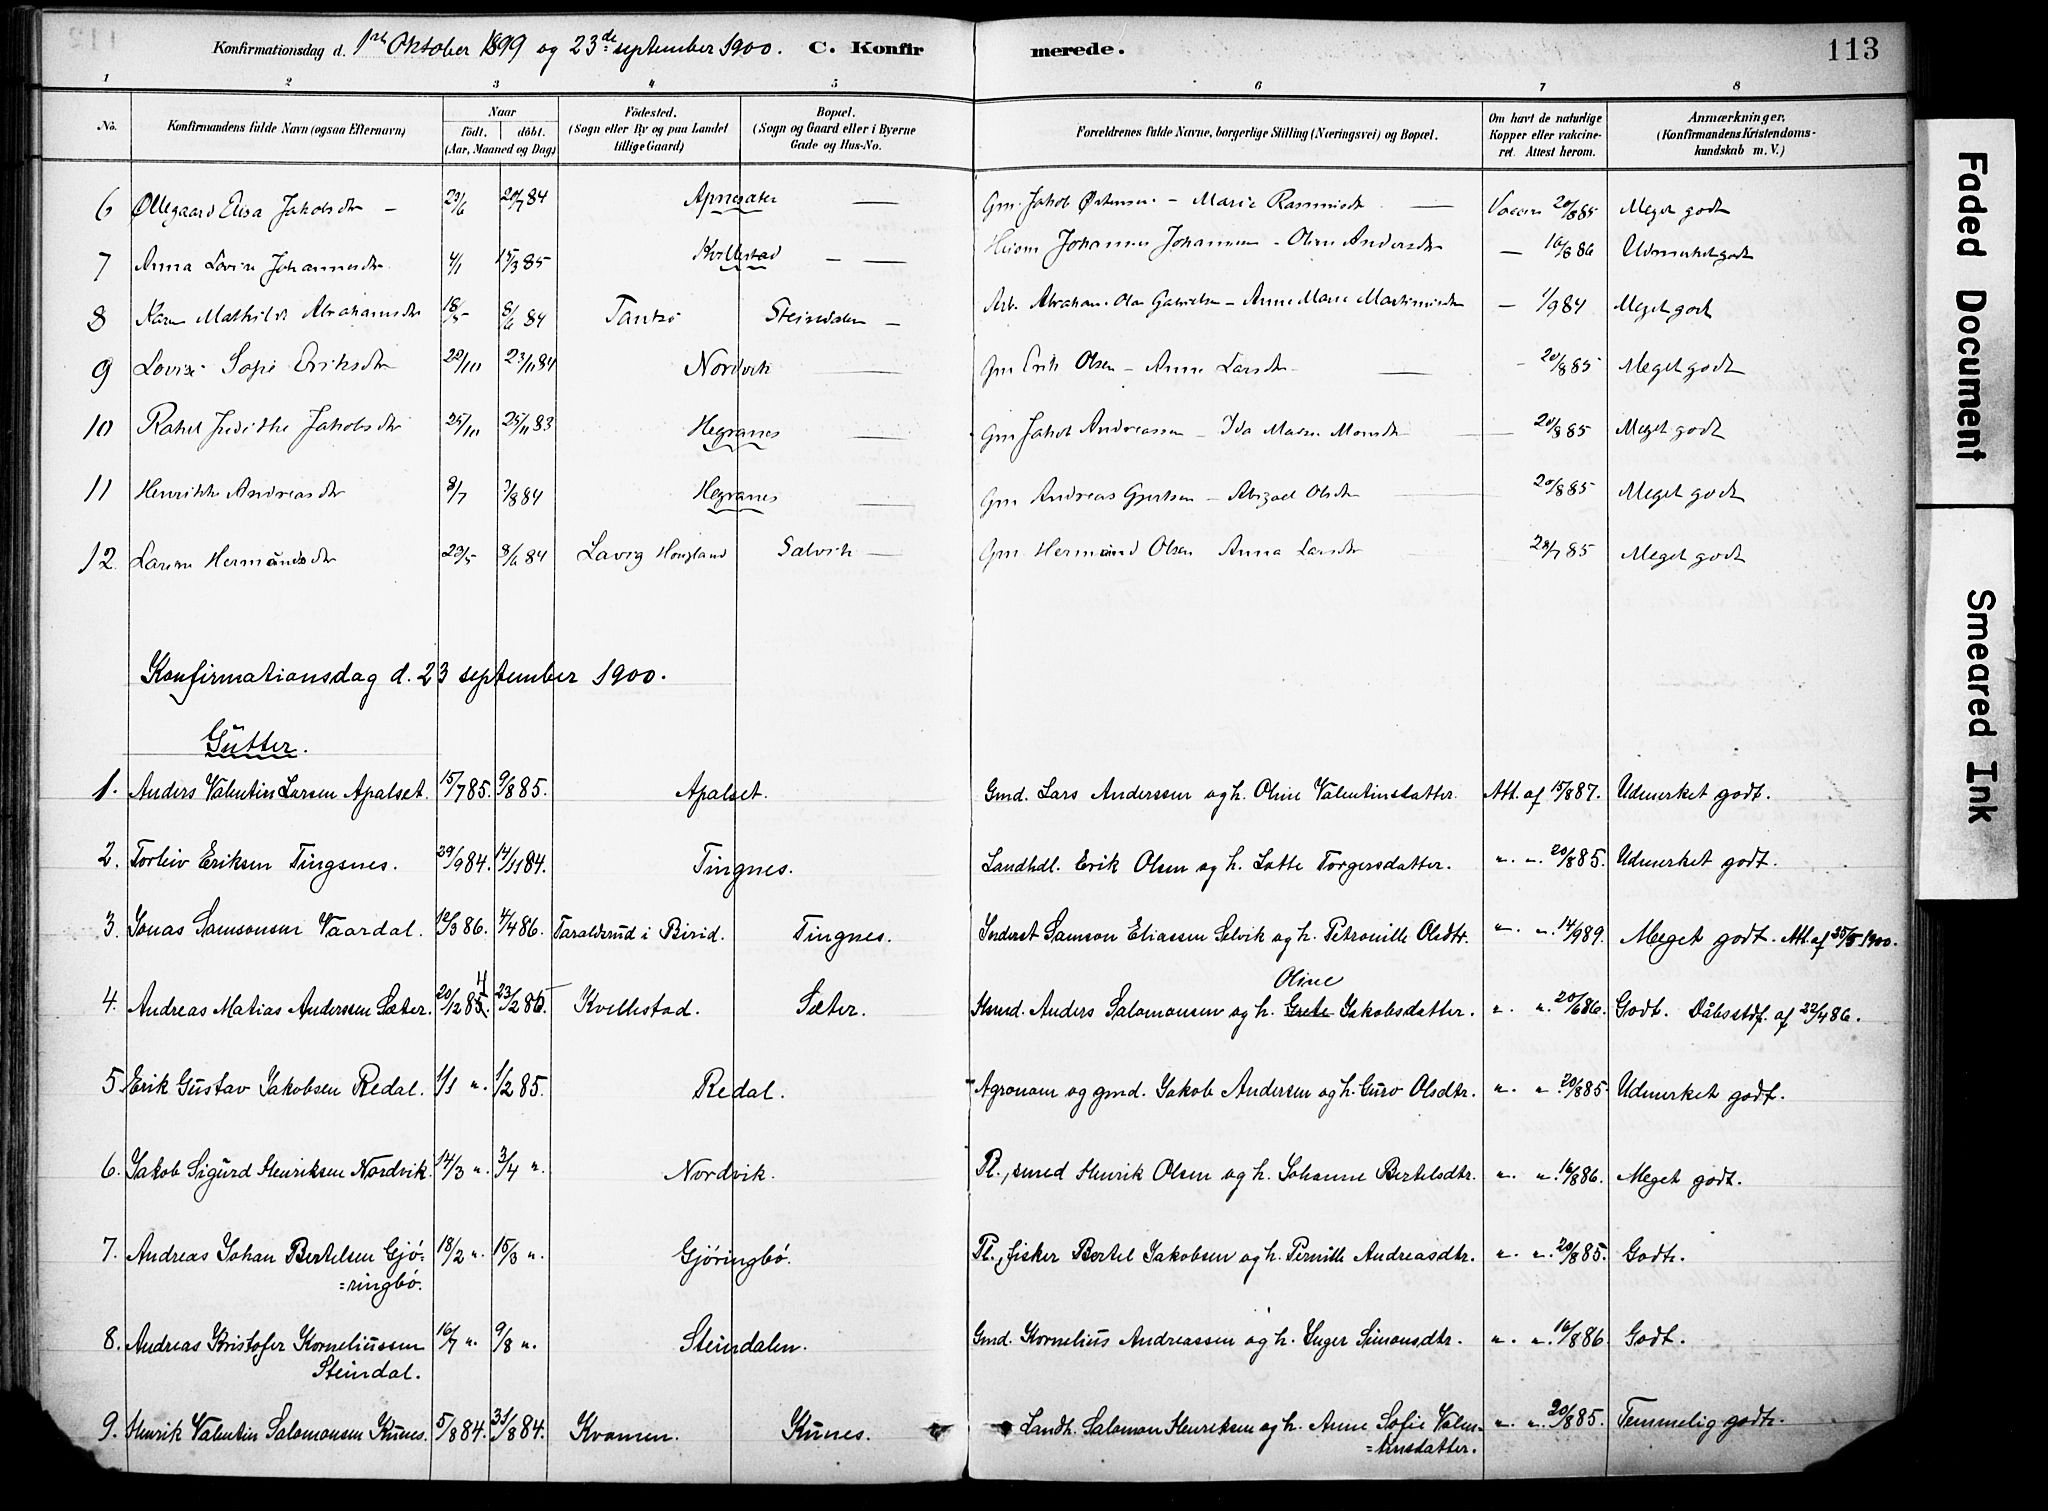 113
Konfirmationsdag d. 1ste Oktober 1899 og 23de september 1900. C. Konfirmerede.
1 2 3 4 5 6 7 8
No. Konfirmandens fulde Navn (ogsaa Efternavn) Naar födt. döbt. (Aar, Maaned og Dag) Födested. (Sogn eller By og paa Landet tillige Gaard) Bopæl. (Sogn og Gaard eller i Byerne Gade og Hus-No. Forældrenes fulde Navne, borgerlige Stilling (Næringsvei) og Bopæl. Om havt de naturlige Kopper eller vakcineret. Attest herom. Anmærkninger, (Konfirmandens Kristendomskundskab m. V.)
6 Ollegaard Elisa Jakobsdtr 23/6 20/7 84 Apnesæter — Gm. Jakob Østensen - Marie Rasmusdtr — Vaccin 20/8 85 Meget godt
7 Anna Lovise Johannesdtr 4/1 15/3 85 Kvillestad — Husm Johannes Johannesen - Oline Andersdtr — 16/8 86 Udmerket godt
8 Karen Mathilde Abrahamsdtr 18/5 8/6 84 Steindalen — Arb. Abraham Olai Gabrielsen - Anne Marie Martinusdtr — 1/9 84 Meget godt
9 Lovise Sofie Eriksdtr 20/10 23/11 84 Nordvik — Gm Erik Olsen - Anne Larsdtr — 20/8 85 Meget godt
10 Rakel Jakobsdtr 25/10 25/11 83 Hegranes — Gm Jakob Andreassen - Ida Monsdtr — 20/8 85 Meget godt
11 Henrikke Andreasdtr 8/7 7/8 84 Hegranes — Gm Andreas Gjertsen - Abigael Olsdtr 20/8 85 Meget godt
12. Larine Hermundsdtr 23/5 8/6 84 Lavig Hougland Sælvik — Gm Hermund Olsen Anna Larsdtr 28/7 85 Meget godt
Konfirmationsdag d. 23 september 1900.
Gutter.
1. Anders Valentin Larsen Apalset. 15/7 85. 9/8 85. Apalset. Gmd. Lars Anderssen og h. Oline Valentinsdatter. Att. af 15/8 87. Udmerket godt.
2. Torleiv Eriksen Tingsnes. 29/9 84. 14/11 84. Tingnes. Landhdl. Erik Olsen og h. Lotte Torgersdatter. " ". 20/8 85. Udmerket godt.
3. Jonas Samsonsen Vaardal. 12/3 86. 4/4 86. Taraldsrud i Birid. Tingnes. Inderst Samson Eliassen Selvik og h. Petronille Olsdtr. " ". 14/9 89. Meget godt. Att. af 25/5 1900.
4. Andreas Matias Anderssen Sæter. 20/12 85 4 23/2 85. Kvellestad. Sæter. Husmd. Anders Salomonsen og h. Grete Oline Jakobsdatter. " ". 20/6 86. Godt. Dåbsatdf. af 22/4 86.
5. Erik Gustav Jakobsen Redal. 1/1 ". 1/2 85. Redal. Agronom og gmd. Jakob Andersen og h. Guro Olsdtr. " ". 20/8 85. Udmerket godt.
6. Jakob Sigurd Henriksen Nordvik. 14/3 ". 3/4 ". Nordvik. Pl., smed Henrik Olsen og h. Johanne Bertelsdtr. " ". 16/8 86. Meget godt.
7. Andreas Johan Bertelsen Gjö-
=ringbö. 18/2 ". 15/3 ". Gjöringbö. Pl., fisker Bertel Jakobsen og h. Pernille Andreasdtr. " ". 20/8 85. Godt.
8. Andreas Kristofer Korneliussen
Steindal. 16/7 ". 9/8 ". Steindalen. Gmd. Kornelius Andreassen og h. Inger Simonsdtr. " ". 16/8 86. Godt.
9. Henrik Valentin Salomonsen Kunes. 5/8 84. 31/8 84. Kvamen. Kunes. Landh. Salomon Henriksen og h. Anne Sofie Valen-
=tinsdatter. " ". 20/8 85. Temmelig godt.
Faded Document
Smeared Ink